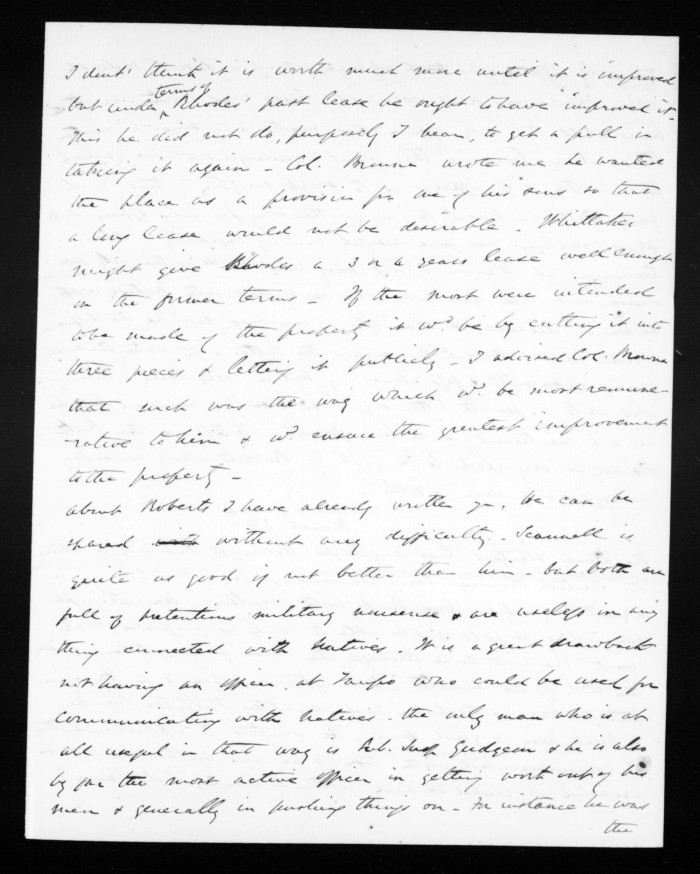 I dont' think it is worth much more until it is improved
but under terms of Rhodes' past lease he ought to have improved it.
This he did not do, purposely I hear, to get a pull in
taking it again - Col. Browne wrote me he wanted
the place as a provision for one of his sons so that
a long lease would not be desirable. Whittaker
might give Rhodes a 3 or 4 years lease well enough
on the former terms - If the most were intended
to be made of the property it wd. be by cutting it into
three pieces & letting it publicly - I advised Col. Browne
that such was the way which wd. be most remune-
-rative to him & wd. ensure the greatest improvement
to the property -
about Roberts I have already written you. He can be
spared with without any difficulty. Scannell is
quite as good if not better than him - but both are
full of pretentious military nonsense & are useless in any
thing connected with Natives. It is a great drawback
not having an officer at Taupo who could be used for
communicating with Natives - the only man who is at
all useful in that way is Sub. Insp Gudgeon & he is also
by far the most active officer in getting work out of his
men & generally in pushing things on - For instance he was
the